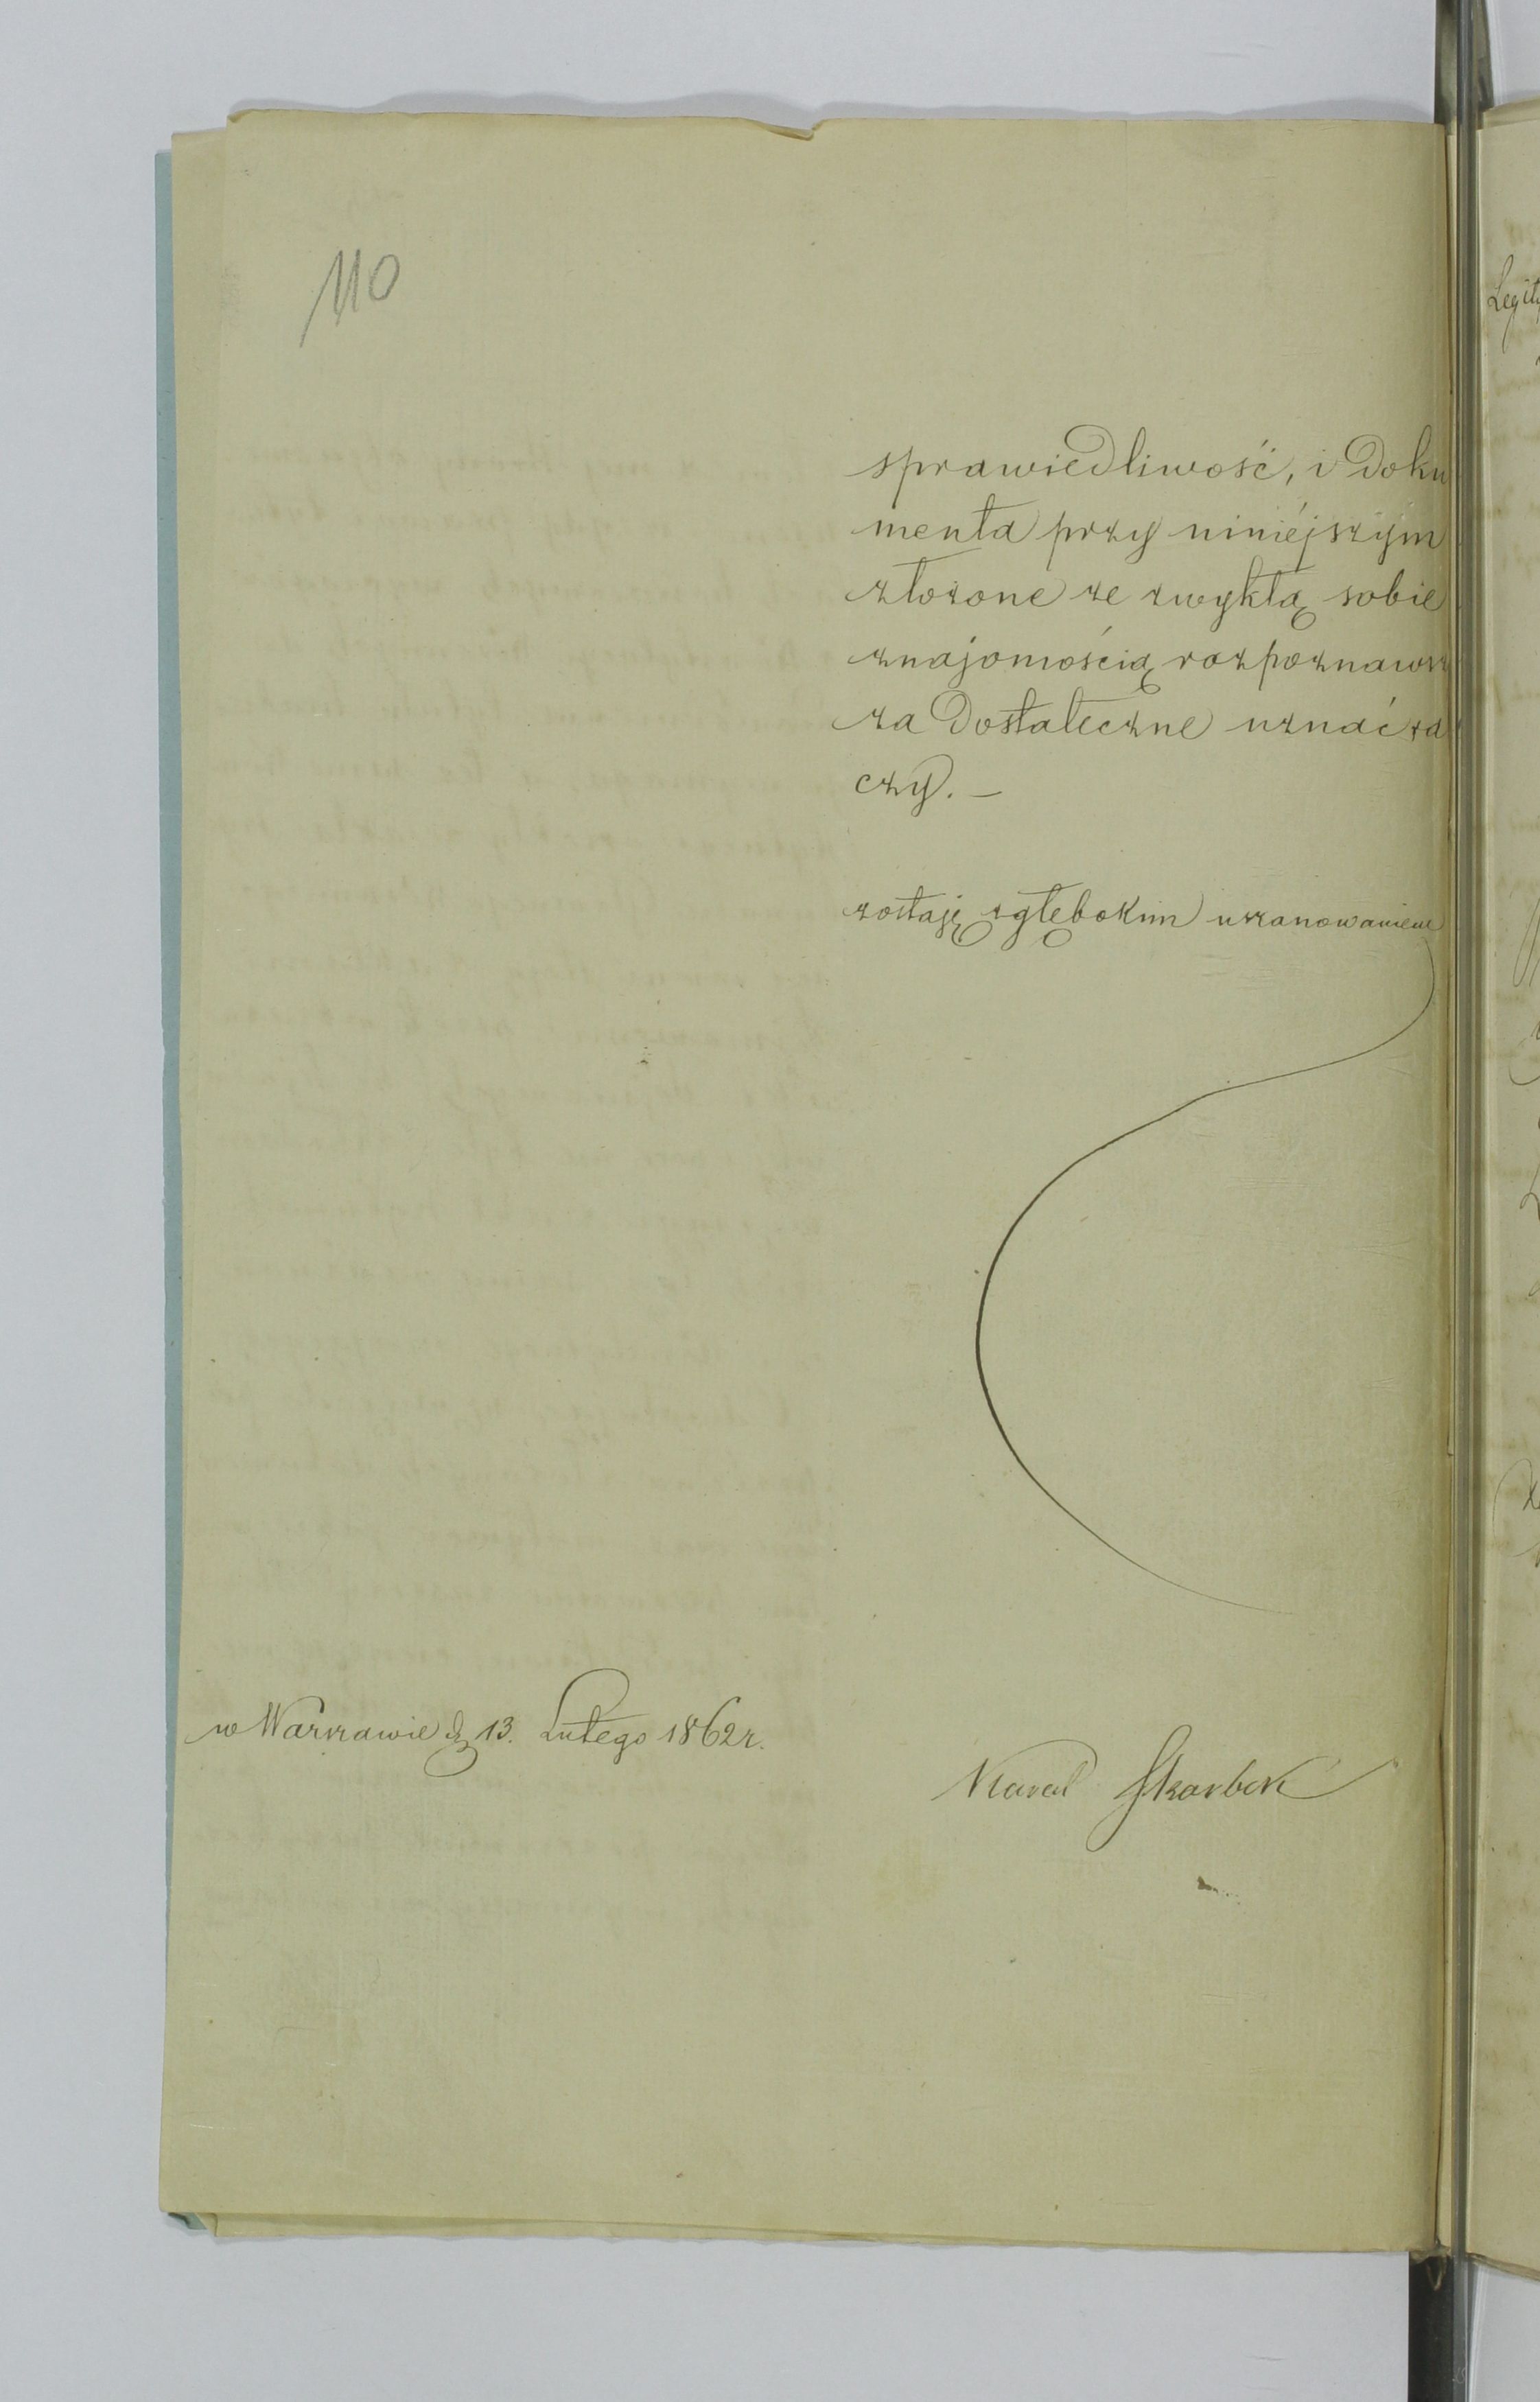 110
sprawiedliwość, i doku
menta przy niniéjszym
złożone ze zwykłą sobie
znajomością rozpoznawsz
za dostateczne uznać ra
czy. —
zostaję z głębokim uszanowaniem
w Warszawie d. 13. Lutego 1862 r.
Karol Skarbek